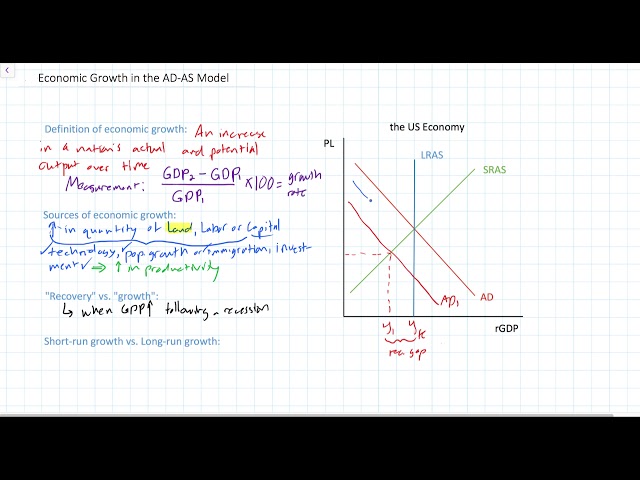 Economic Growth in the AD-AS Model
Definition of economic growth: An increase
in a nation's actual and potential
output over time
Measurement: GDP₂ - GDP₁ / GDP₁ × 100 = growth rate
Sources of economic growth:
↑ in quantity of Land, Labor or Capital
✓technology, ✓pop growth or immigration, invest-
ment✓ ⇒ ↑ in productivity
"Recovery" vs. "growth":
↳ when GDP↑ following a recession
Short-run growth vs. Long-run growth:
the US Economy
PL
LRAS
SRAS
AD₁
AD
rGDP
y₁
yf
rec gap